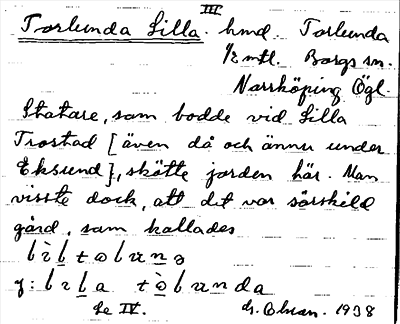 III
Torlunda Lilla. hmd. Torlunda
1/2 mtl. Borgs sn.
Norrköping Ögl.
Statare, som bodde vid Lilla
Trostad [även då och ännu under
Eksund], skötte jorden här. Man
visste dock, att det var särskild
gård, som kallades
Se IV. 1938